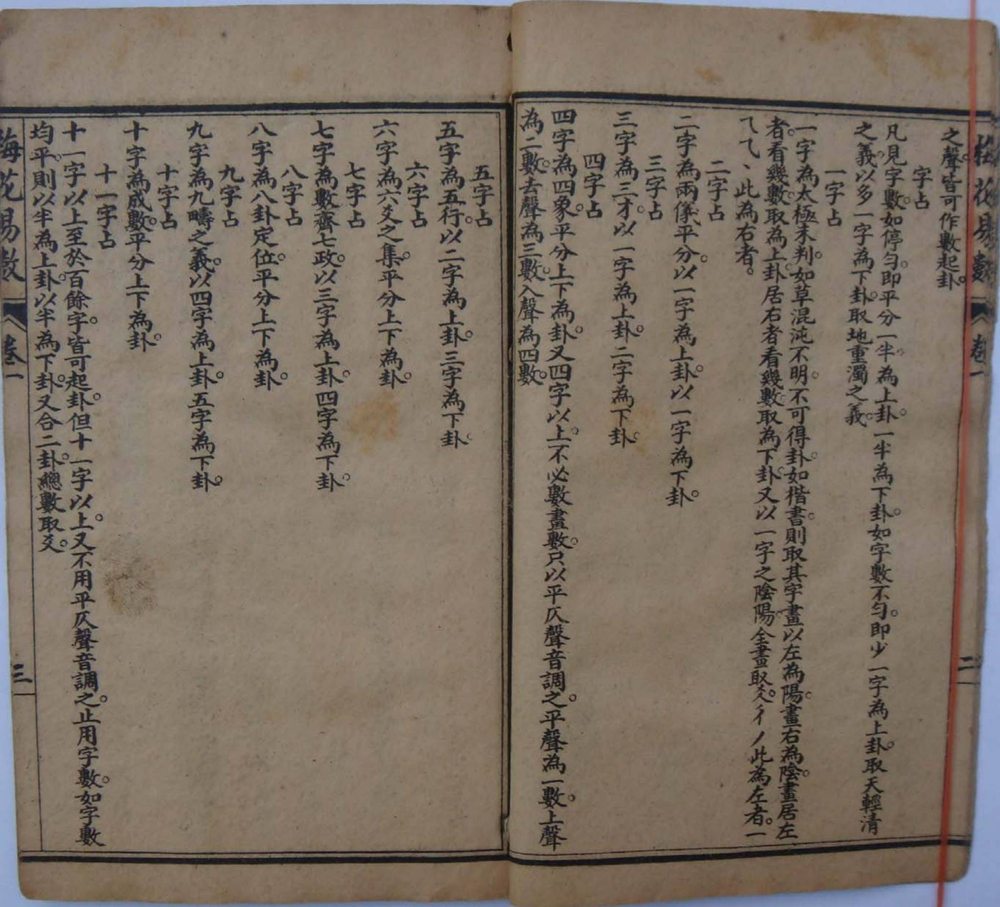 梅花易數 卷一 二
之聲。皆可作數起卦。
字占
凡見字數。如停勻。即平分一半為上卦。一半為下卦。如字數不勻。即少一字為上卦。取天輕清
之義。以多一字為下卦。取地重濁之義。
一字占
一字為太極未判。如草混沌不明。不可得卦。如楷書則取其字畫。以左為陽畫。右為陰畫。居左
者看幾數。取為上卦。居右者看幾數。取為下卦。又以一字之陰陽全畫取爻。彳丿此為左者。一
乁乀此為右者。
二字占
二字為兩儀平分。以一字為上卦。以一字為下卦。
三字占
三字為三才。以一字為上卦。二字為下卦。
四字占
四字為四象。平分上下為卦。又四字以上。不必數畫數。只以平仄聲音調之。平聲為一數。上聲
為二數。去聲為三數。入聲為四數。
五字占
五字為五行。以二字為上卦。三字為下卦。
六字占
六字為六爻之集。平分上下為卦。
七字占
七字為數齊七政。以三字為上卦。四字為下卦。
八字占
八字為八卦定位。平分上下為卦。
九字占
九字為九疇之義。以四字為上卦。五字為下卦。
十字占
十字為成數。平分上下為卦。
十一字占
十一字以上至於百餘字。皆可起卦。但十一字以上。又不用平仄聲音調之。止用字數。如字數
均平。則以半為上卦。以半為下卦。又合二卦總數取爻。
梅花易數 卷一 三